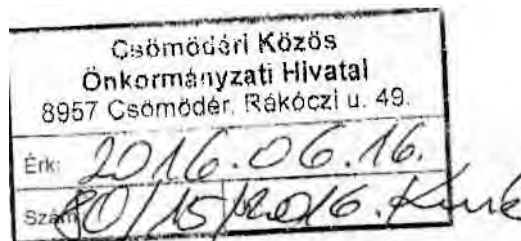 Csömödéri Közös
Önkormányzati Hivatal
8957 Csömödér, Rákóczi u. 49.
Érk: 2016.06.16.
Szám: 80/15/2016.